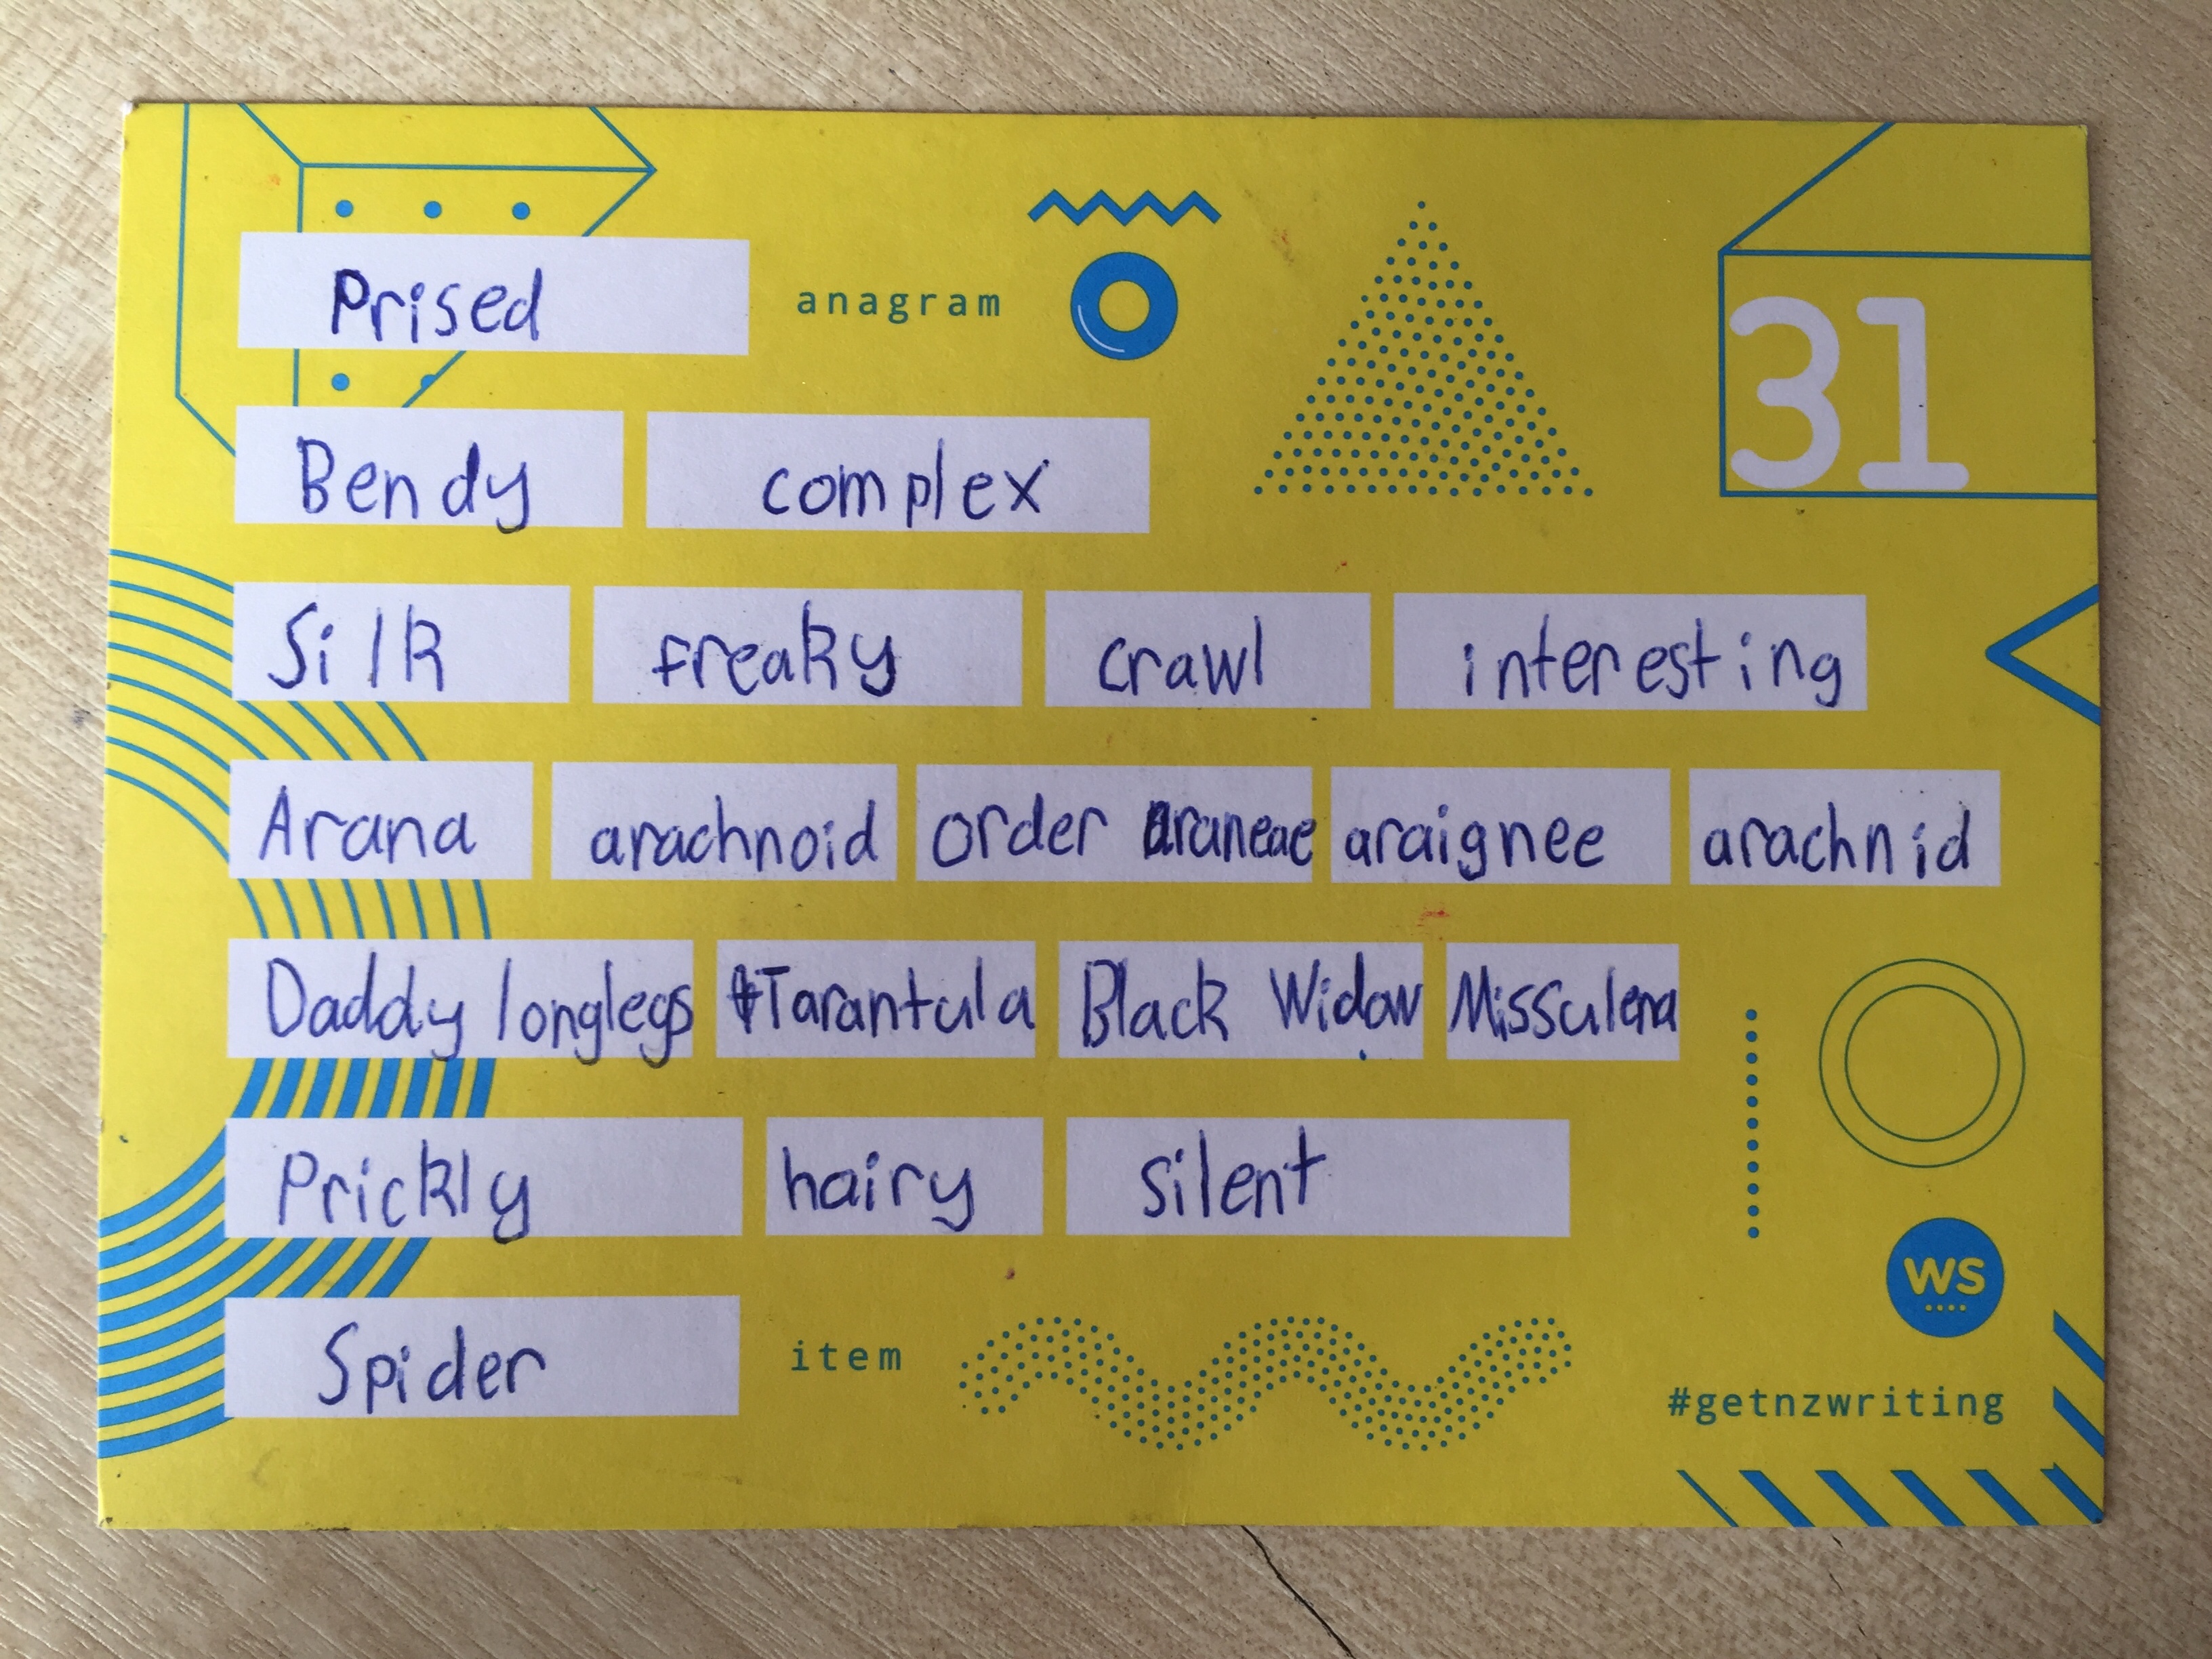 Prised anagram 31
Bendy complex
Silk freaky crawl interesting
Arana arachnoid order araneae araignee arachnid
Daddy longlegs Tarantula Black Widow Missulena
Prickly hairy silent
WS
Spider item
#getnzwriting